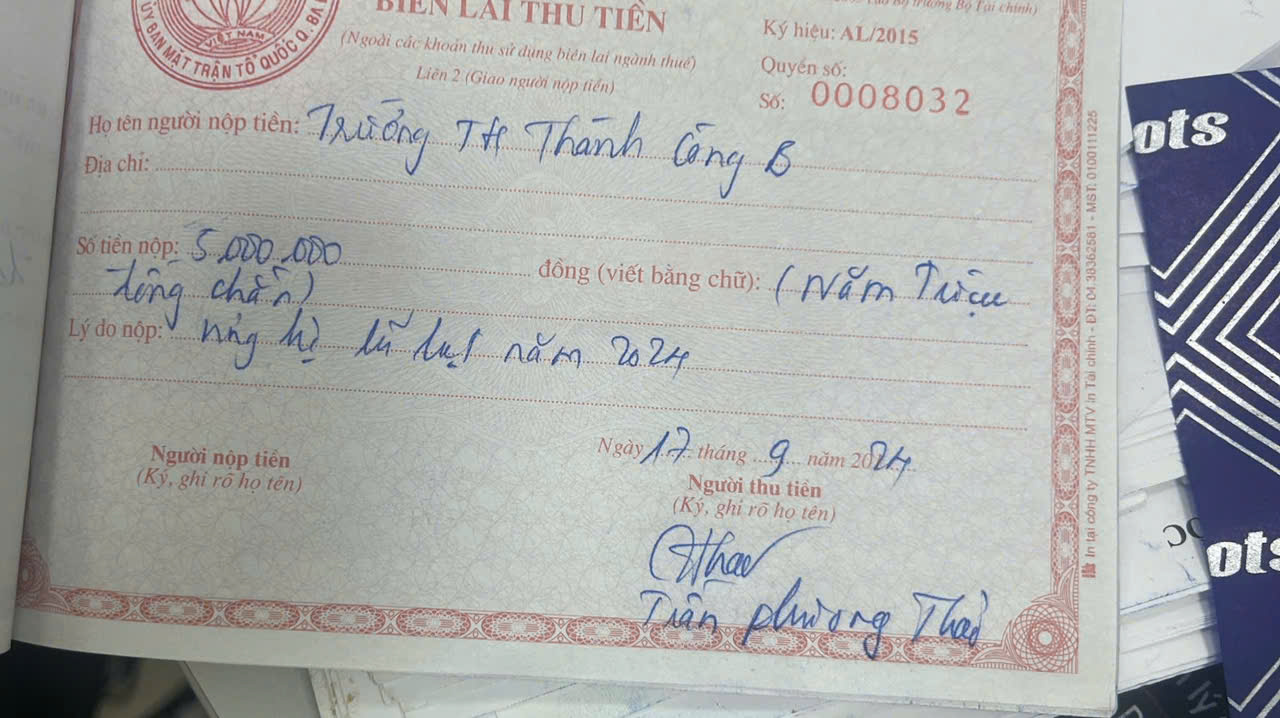 BIÊN LAI THU TIỀN
(Ngoài các khoản thu sử dụng biên lai ngành thuế)
Liên 2 (Giao người nộp tiền)
ỦY BAN MẶT TRẬN TỔ QUỐC Q. BA
VIỆT NAM
Bộ trưởng Bộ Tài chính)
Ký hiệu: AL/2015
Quyển số:
Số: 0008032
Họ tên người nộp tiền: Trường TH Thành Công B
Địa chỉ:
Số tiền nộp: 5.000.000 đồng (viết bằng chữ): (Năm Triệu
đồng chẵn)
Lý do nộp: ủng hộ lũ lụt năm 2024
Ngày 17 tháng 9 năm 2024
Người nộp tiền
(Ký, ghi rõ họ tên)
Người thu tiền
(Ký, ghi rõ họ tên)
Thao
Trần Phương Thảo
In tại công ty TNHH MTV in Tài chính - ĐT: 04.38362581 - MST: 0100111225
ots
ots